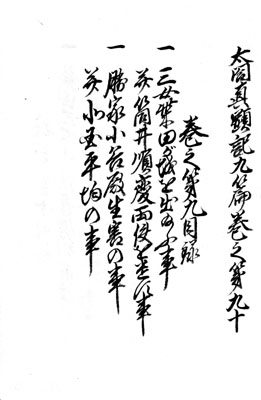 太閤真顕記九篇巻之第九十
巻之第九目録
一 三女柴田城を出る事
并筒井順慶両使を事
一 勝家小谷殿生害の事
并北国平均の事